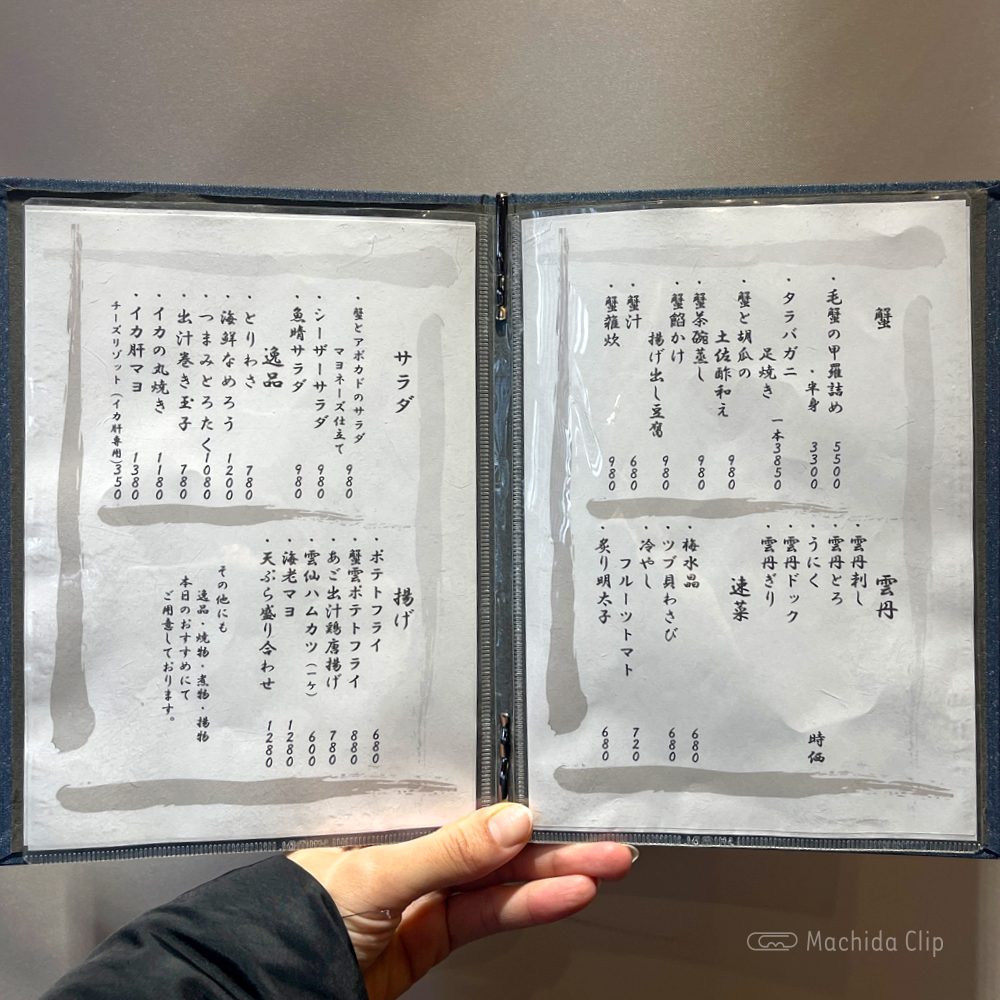 蟹
・毛蟹の甲羅詰め 5500
・半身 3300
・タラバガニ
足焼き 一本3850
・蟹と胡瓜の
土佐酢和え 980
・蟹茶碗蒸し 980
・蟹餡かけ
揚げ出し豆腐 980
・蟹汁 680
・蟹雑炊 980
雲丹
・雲丹刺し
・雲丹とろ
・うにく
・雲丹ドック
・雲丹ぎり
時価
速菜
・梅水晶 680
・ツブ貝わさび 680
・冷やし
フルーツトマト 720
・炙り明太子 680
サラダ
・蟹とアボカドのサラダ
マヨネーズ仕立て 980
・シーザーサラダ 980
・魚晴サラダ 980
逸品
・とりわさ 780
・海鮮なめろう 1200
・つまみとろたく 1080
・出汁巻き玉子 780
・イカの丸焼き 1180
・イカ肝マヨ 1380
チーズリゾット(イカ肝専用) 350
揚げ
・ポテトフライ 680
・蟹雲ポテトフライ 880
・あご出汁鶏唐揚げ 780
・雲仙ハムカツ(一ケ) 600
・海老マヨ 1280
・天ぷら盛り合わせ 1280
その他にも
逸品・焼物・煮物・揚物
本日のおすすめにて
ご用意しております。
Machida Clip